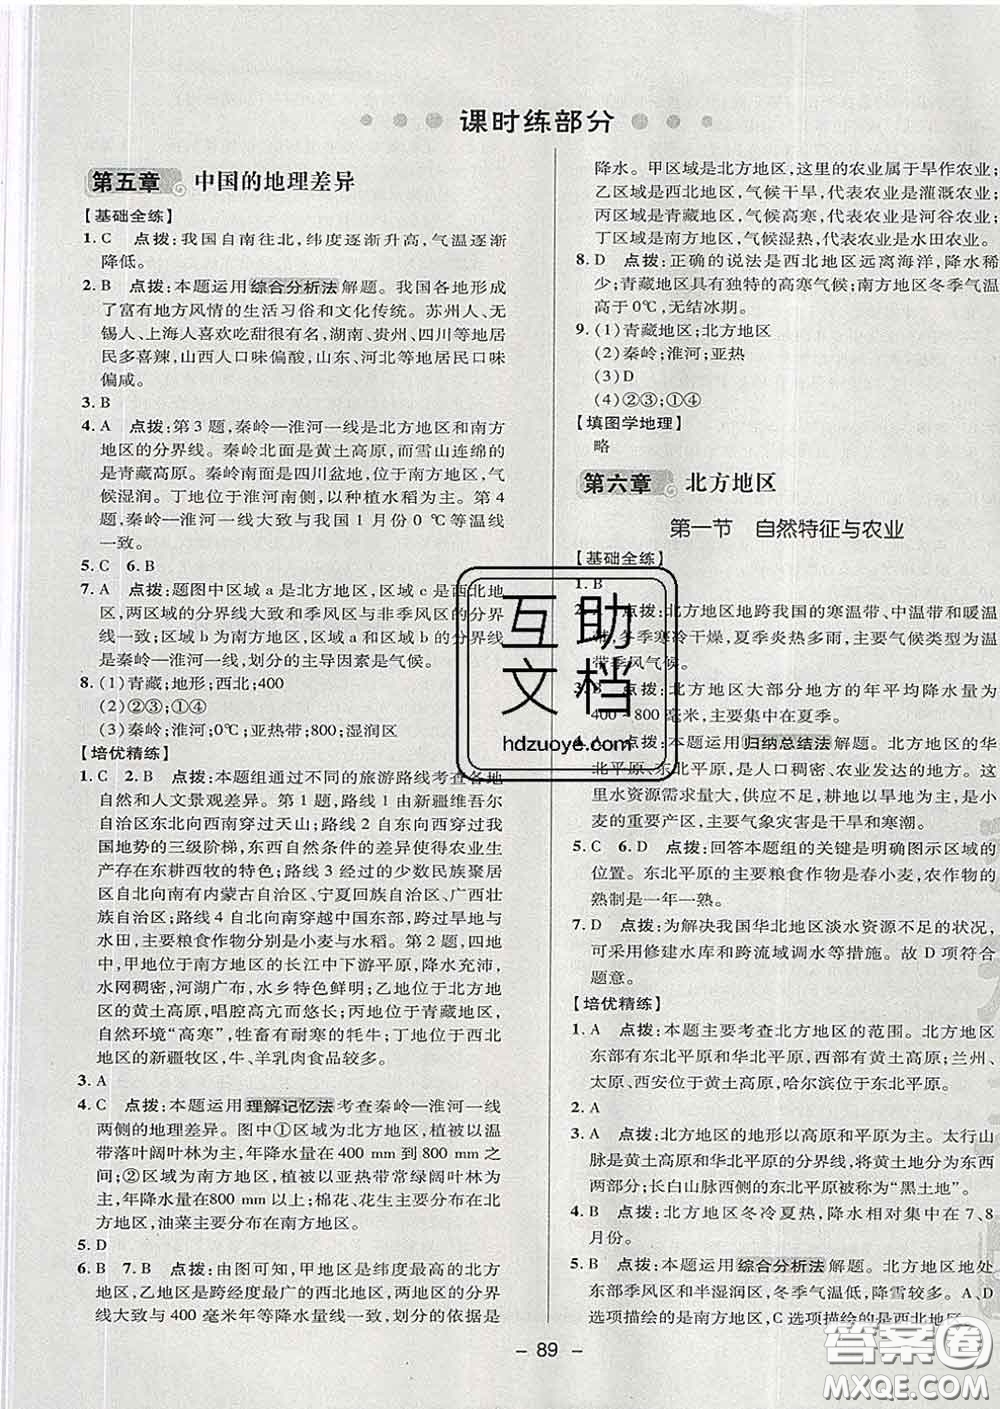 课时练部分
第五章 中国的地理差异
【基础全练】
1. C 点拨:我国自南往北,纬度逐渐升高,气温逐渐
降低。
2. B 点拨:本题运用综合分析法解题。我国各地形成
了富有地方风情的生活习俗和文化传统。苏州人、无
锡人、上海人喜欢吃甜很有名,湖南、贵州、四川等地居
民多喜辣,山西人口味偏酸,山东、河北等地居民口味
偏咸。
3. B
4. A 点拨:第3题,秦岭—淮河一线是北方地区和南方
地区的分界线。秦岭北面是黄土高原,而雪山连绵的
是青藏高原。秦岭南面是四川盆地,位于南方地区,气
候湿润。丁地位于淮河南侧,以种植水稻为主。第4
题,秦岭—淮河一线大致与我国1月份0 ℃等温线
一致。
5. C 6. B
7. A 点拨:题图中区域a是北方地区,区域c是西北地
区,两区域的分界线大致和季风区与非季风区的分界
线一致;区域b为南方地区,区域a和区域b的分界线
为秦岭—淮河一线,划分的主导因素是气候。
8. (1)青藏;地形;西北;400
(2)②③;①④
(3)秦岭;淮河;0℃;亚热带;800;湿润区
【培优精练】
1. C 2. B 点拨:本题组通过不同的旅游路线考查各地
自然和人文景观差异。第1题,路线1由新疆维吾尔
自治区东北向西南穿过天山;路线2自东向西穿过我
国地势的三级阶梯,东西自然条件的差异使得农业生
产存在东耕西牧的特色;路线3经过的少数民族聚居
区自北向南有内蒙古自治区、宁夏回族自治区、广西壮
族自治区;路线4自北向南穿越中国东部,跨过旱地与
水田,主要粮食作物分别是小麦与水稻。第2题,四地
中,甲地位于南方地区的长江中下游平原,降水充沛,
水网稠密,河湖广布,水乡特色鲜明;乙地位于北方地
区的黄土高原,唱腔高亢而悠长;丙地位于青藏地区,
自然环境“高寒”,牲畜有耐寒的牦牛;丁地位于西北
地区的新疆牧区,牛、羊乳肉食品较多。
3. A
4. C 点拨:本题运用理解记忆法考查秦岭—淮河一线
两侧的地理差异。图中①区域为北方地区,植被以温
带落叶阔叶林为主,年降水量在400~800 mm之
间;②区域为南方地区,植被以亚热带常绿阔叶林为
主,年降水量在800 mm以上;棉花、花生主要分布在北
方地区,油菜主要分布在南方地区。
5. D
6. B 7. B 点拨:由图可知,甲地区是纬度最高的北方
地区,乙地区是跨经度最广的西北地区,两地区的分界
线大致与400毫米年等降水量线一致,划分的依据是
降水。甲区域是北方地区,这里的农业属于旱作农业;
乙区域是西北地区,气候干旱,代表农业是灌溉农业;
丙区域是青藏地区,气候高寒,代表农业是河谷农业;
丁区域是南方地区,气候湿热,代表农业是水田农业。
8. D 点拨:正确的说法是西北地区远离海洋,降水稀
少;青藏地区具有独特的高寒气候;南方地区冬季气温
高于0℃,无结冰期。
9. (1)青藏地区;北方地区
(2)秦岭;淮河;亚热
(3)D
(4)②③;①④
【填图学地理】
略
第六章 北方地区
第一节 自然特征与农业
【基础全练】
1. B
点拨:北方地区地跨我国的寒温带、中温带和暖温
带,冬季寒冷干燥,夏季炎热多雨,主要气候类型为温
带季风气候。
3. B 点拨:北方地区大部分地方的年平均降水量为
400~800毫米,主要集中在夏季。
4. A 点拨:本题运用归纳总结法解题。北方地区的华
北平原、东北平原,是人口稠密、农业发达的地方。这
里水资源需求量大,供应不足,耕地以旱地为主,是小
麦的重要产区,主要气象灾害是干旱和寒潮。
5. C 6. D 点拨:回答本题组的关键是明确图示区域的
位置。东北平原的主要粮食作物是春小麦,农作物的
熟制是一年一熟。
7. D 点拨:为解决我国华北地区淡水资源不足的状况,
可采用修建水库和跨流域调水等措施。故D项符合
题意。
【培优精练】
1. A 点拨:本题主要考查北方地区的范围。北方地区
东部有东北平原和华北平原,西部有黄土高原;兰州、
太原、西安位于黄土高原,哈尔滨位于东北平原。
2. A
3. A 点拨:北方地区的地形以高原和平原为主。太行山
脉是黄土高原和华北平原的分界线,将黄土地分为东、
西两部分;长白山脉西侧的东北平原被称为“黑土地”。
4. B 点拨:北方地区冬冷夏热,降水相对集中在7、8
月份。
5. B 点拨:本题运用综合分析法解题。北方地区地处
东部季风区和半湿润区,冬季气温低,降雪常见。A、D
选项描绘的是南方地区,C选项描绘的是西北地区。
- 89 -
互助
文档
hdzuoye.com
答案圈
MXQE.COM